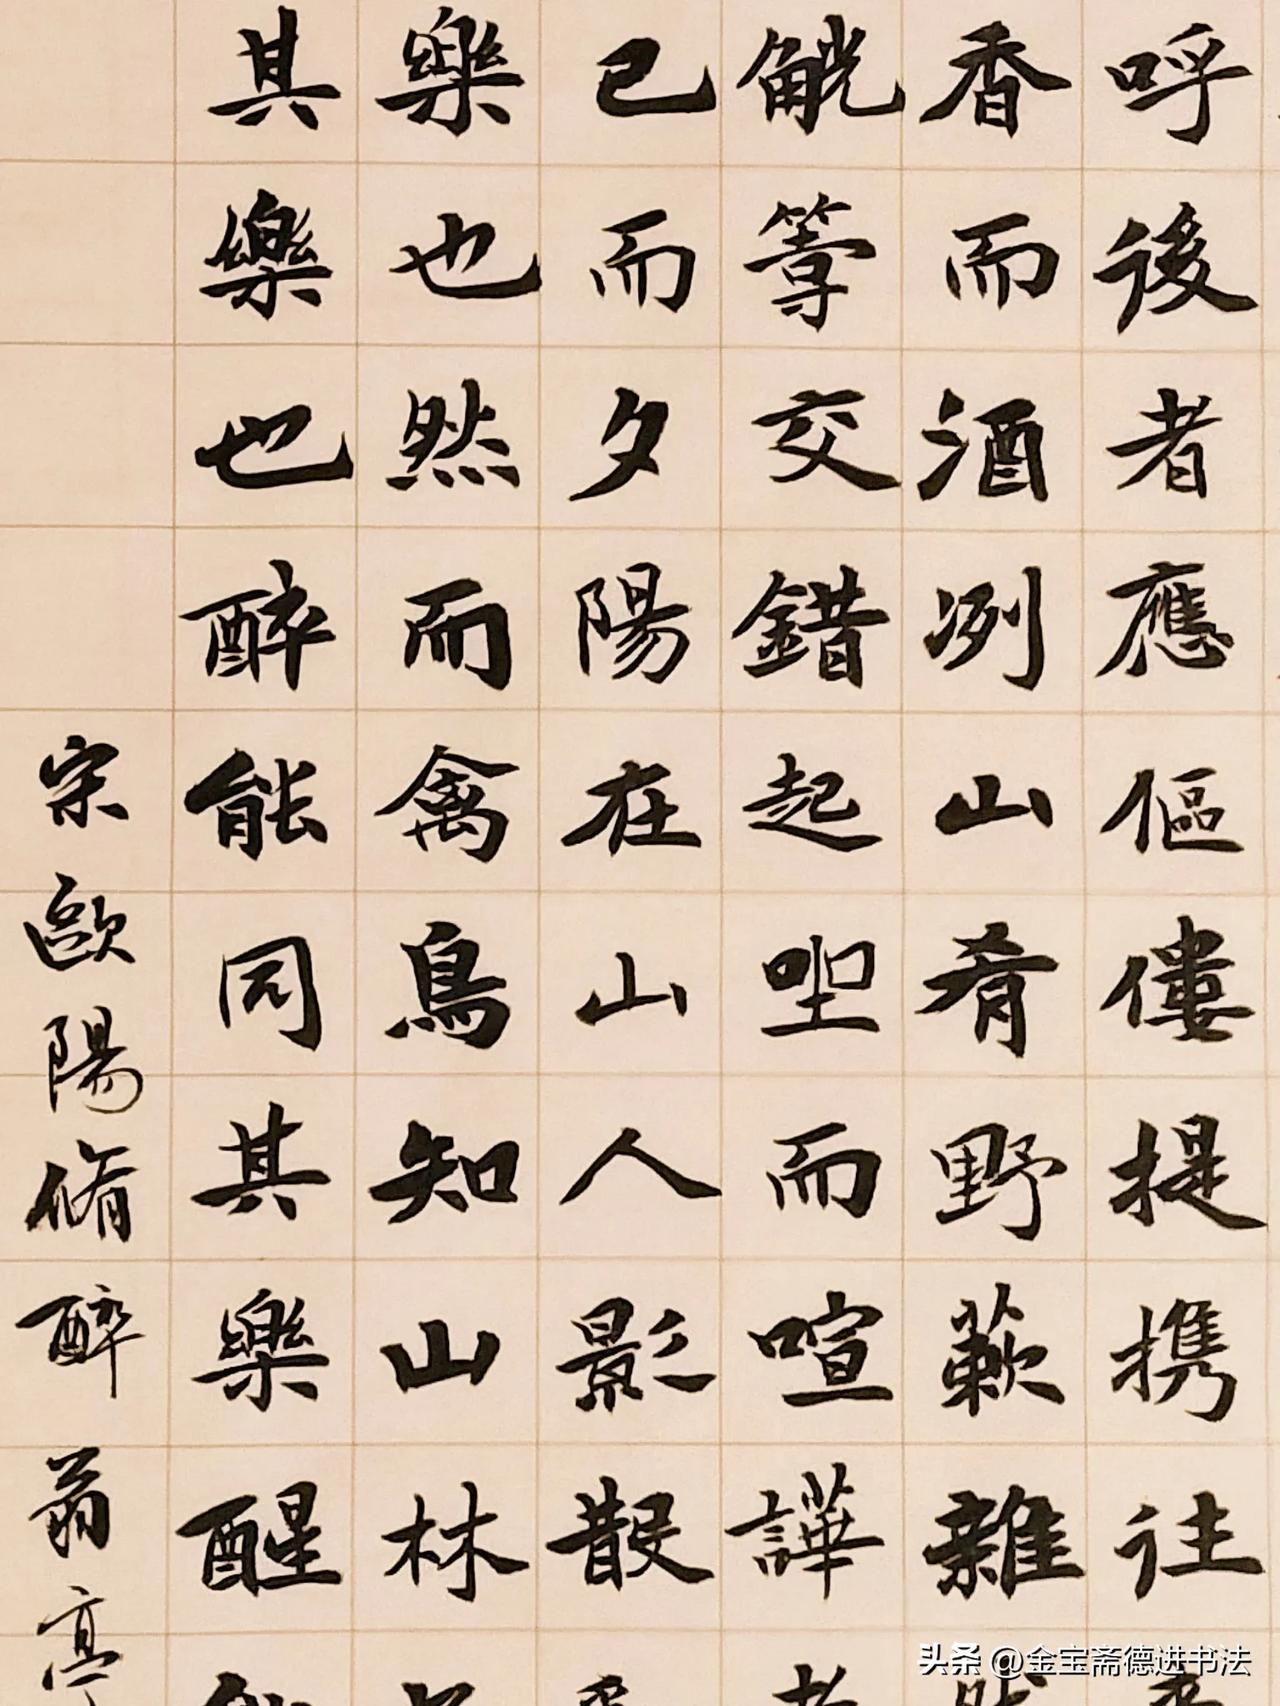 呼後者應傴僂提携往
香而酒冽山肴野蔌雜
觥籌交錯起坐而諠譁
已而夕陽在山人影散
樂也然而禽鳥知山林
其樂也醉能同其樂醒
宋歐陽脩醉翁亭
头条@金宝斋德进书法